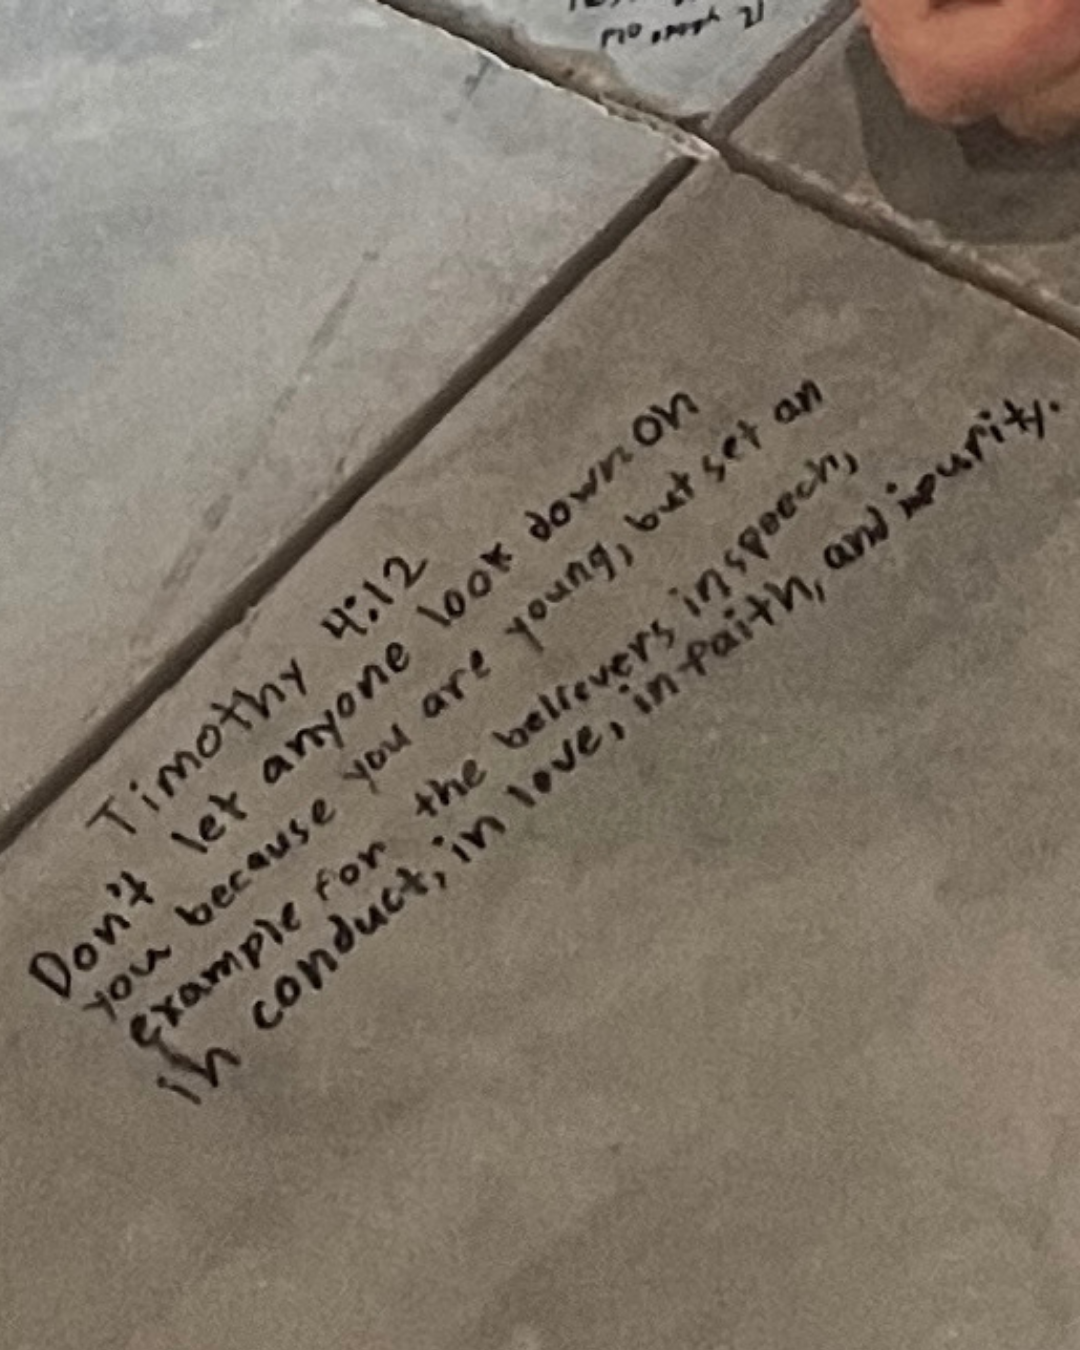 12 years old
Timothy 4:12
Don't let anyone look down on
you because you are young, but set an
example for the believers in speech,
in conduct, in love, in faith, and in purity.